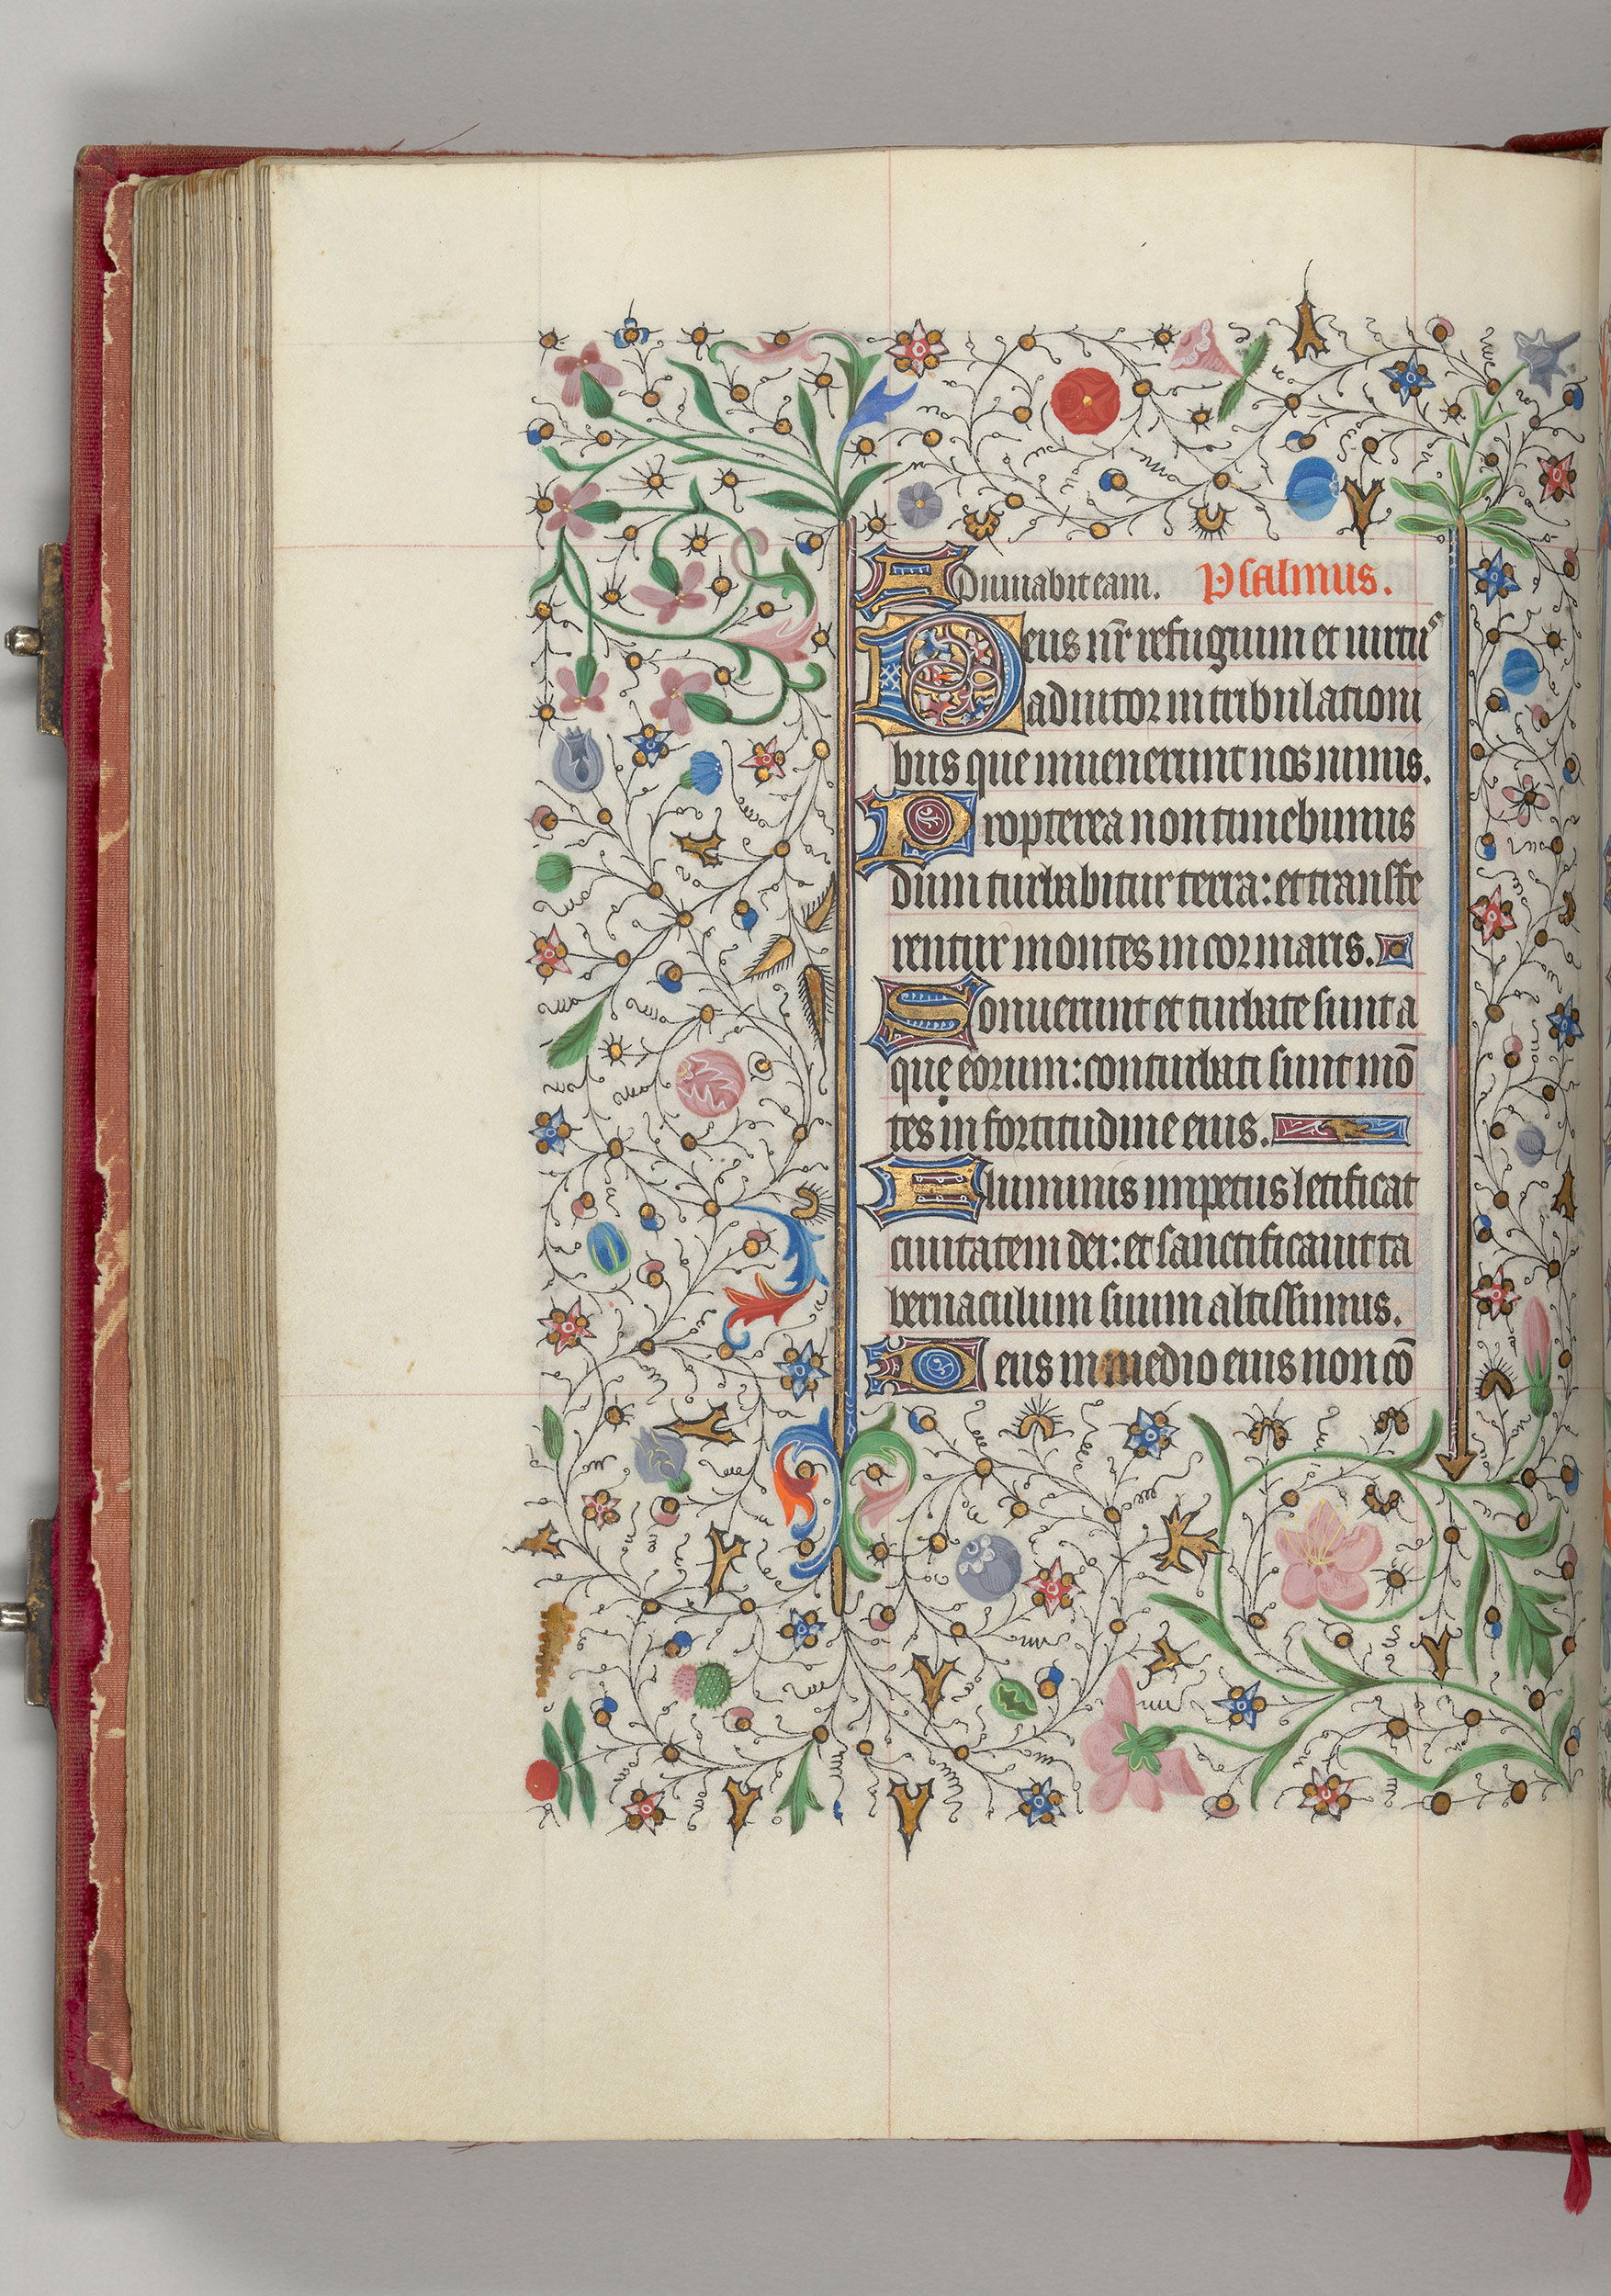 Adiuuabit eam. Psalmus.
Deus nr̄ refugium et uirtus
adiutor in tribulationi
bus que inuenerunt nos nimis.
Propterea non timebimus
dum turbabitur terra: et transfe
rentur montes in cor maris.
Sonuerunt et turbate sunt a
que eorum: conturbati sunt mō
tes in fortitudine eius.
Fluminis impetus letificat
ciuitatem dei: et sanctificauit ta
bernaculum suum altissimus.
Deus in medio eius non cō